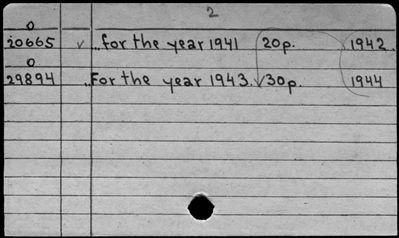 2
0
20665 ✓ „ for the year 1941 20p. 1942
0
29894 „ For the year 1943. 30p. 1944